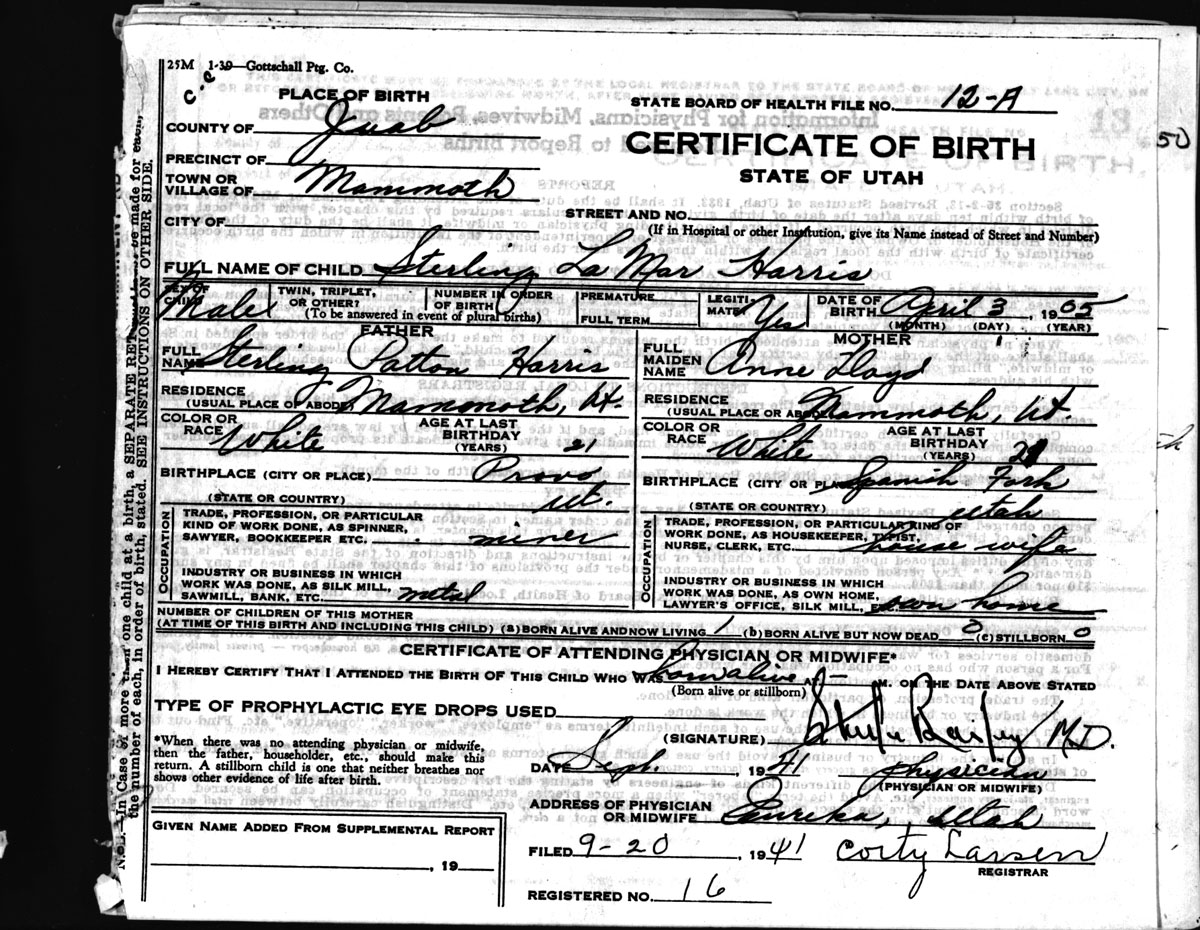 25M 1-39—Gottschall Ptg. Co.
PLACE OF BIRTH
STATE BOARD OF HEALTH FILE NO. 12-A
COUNTY OF Juab
CERTIFICATE OF BIRTH
STATE OF UTAH
PRECINCT OF
TOWN OR VILLAGE OF Mammoth
CITY OF
STREET AND NO.
(If in Hospital or other Institution, give its Name instead of Street and Number)
FULL NAME OF CHILD Sterling La Mar Harris
SEX OF CHILD Male
TWIN, TRIPLET, OR OTHER?
NUMBER IN ORDER OF BIRTH
(To be answered in event of plural births)
PREMATURE
FULL TERM
LEGITI-MATE Yes
DATE OF BIRTH April 3, 1905
(MONTH) (DAY) (YEAR)
FATHER
FULL NAME Sterling Patton Harris
RESIDENCE (USUAL PLACE OF ABODE) Mammoth, Ut.
COLOR OR RACE White
AGE AT LAST BIRTHDAY (YEARS) 21
BIRTHPLACE (CITY OR PLACE) Provo
(STATE OR COUNTRY) Ut.
OCCUPATION
TRADE, PROFESSION, OR PARTICULAR
KIND OF WORK DONE, AS SPINNER,
SAWYER, BOOKKEEPER ETC. miner
INDUSTRY OR BUSINESS IN WHICH
WORK WAS DONE, AS SILK MILL,
SAWMILL, BANK, ETC. metal
MOTHER
FULL MAIDEN NAME Anne Lloyd
RESIDENCE (USUAL PLACE OF ABODE) Mammoth, Ut.
COLOR OR RACE White
AGE AT LAST BIRTHDAY (YEARS)
BIRTHPLACE (CITY OR PLACE) Spanish Fork
(STATE OR COUNTRY) Utah
OCCUPATION
TRADE, PROFESSION, OR PARTICULAR KIND OF
WORK DONE, AS HOUSEKEEPER, TYPIST,
NURSE, CLERK, ETC. house wife
INDUSTRY OR BUSINESS IN WHICH
WORK WAS DONE, AS OWN HOME,
LAWYER'S OFFICE, SILK MILL, ETC. own home
NUMBER OF CHILDREN OF THIS MOTHER
(AT TIME OF THIS BIRTH AND INCLUDING THIS CHILD) (a) BORN ALIVE AND NOW LIVING 1 (b) BORN ALIVE BUT NOW DEAD 0 (c) STILLBORN 0
CERTIFICATE OF ATTENDING PHYSICIAN OR MIDWIFE*
I HEREBY CERTIFY THAT I ATTENDED THE BIRTH OF THIS CHILD WHO WAS born alive AT — M. ON THE DATE ABOVE STATED
(Born alive or stillborn)
TYPE OF PROPHYLACTIC EYE DROPS USED
(SIGNATURE) Bailey M.D.
*When there was no attending physician or midwife,
then the father, householder, etc., should make this
return. A stillborn child is one that neither breathes nor
shows other evidence of life after birth.
DATE Sept., 1941 physician
(PHYSICIAN OR MIDWIFE)
ADDRESS OF PHYSICIAN OR MIDWIFE Eureka, Utah
GIVEN NAME ADDED FROM SUPPLEMENTAL REPORT
, 19
FILED 9-20, 1941 Corty Larsen
REGISTRAR
REGISTERED NO. 16
N.B.—In Case of more than one child at a birth, a SEPARATE RETURN must be made for each,
the number of each, in order of birth, stated. SEE INSTRUCTIONS ON OTHER SIDE.
50